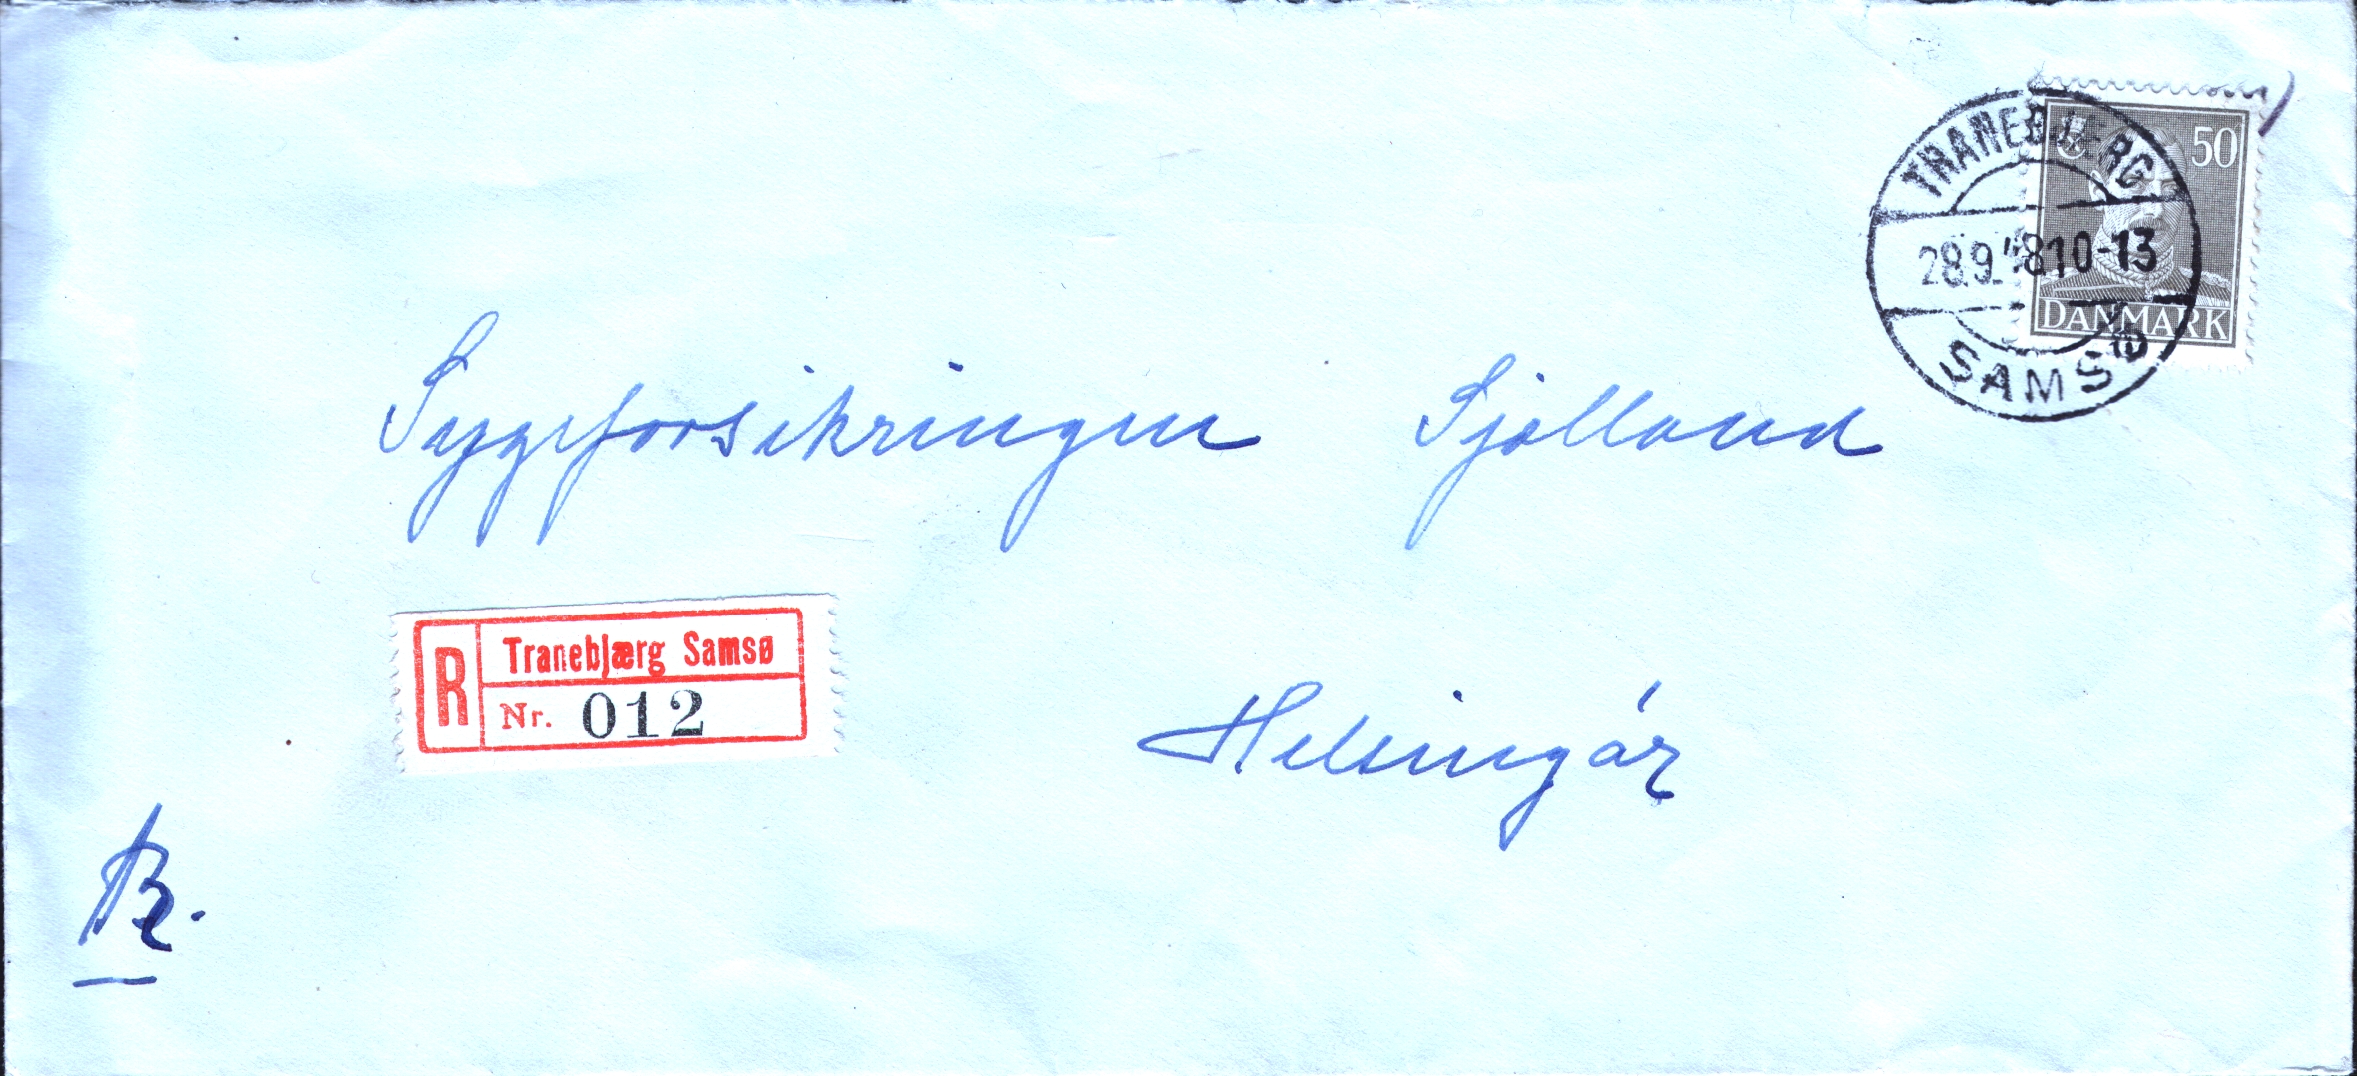 TRANEBJÆRG
50
28.9.48 10-13
DANMARK
SAMSØ
Sygeforsikringen Sjælland
R Tranebjærg Samsø
Nr. 012
Helsingør
R.